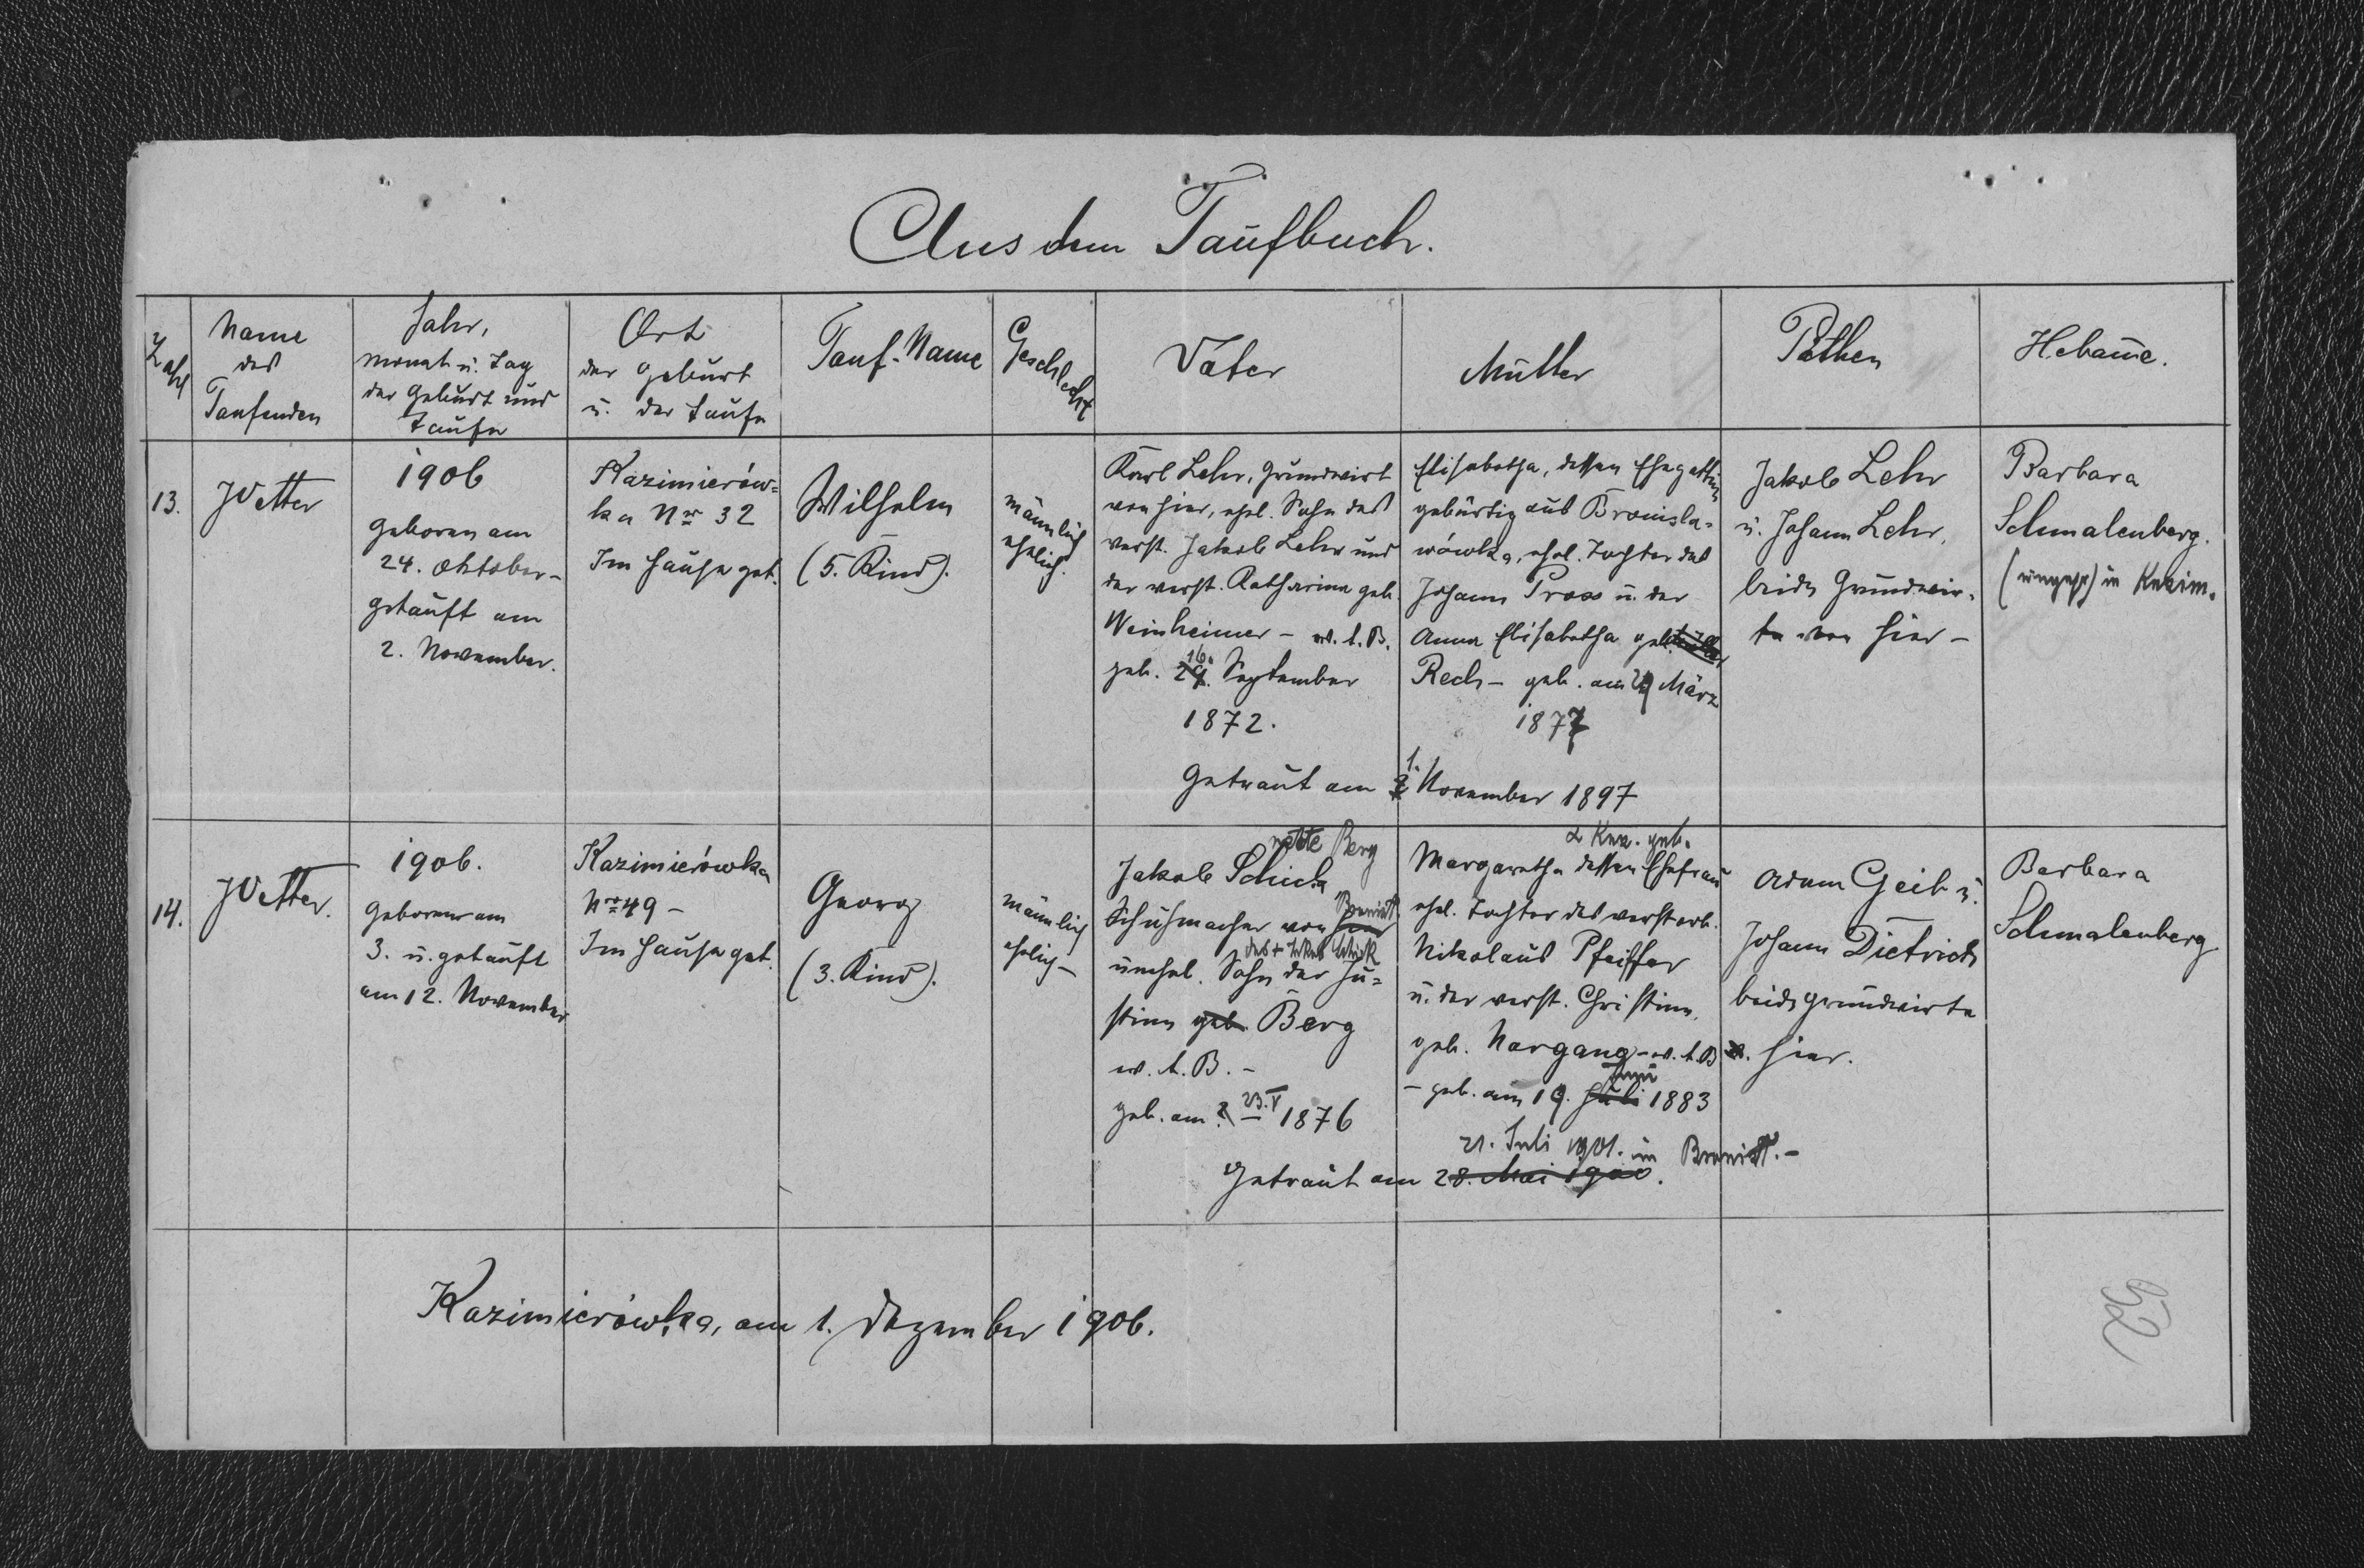 Aus dem Taufbuch.
Zahl
Name
des
Taufenden
Jahr,
Monat u. Tag
der Geburt und
Taufe
Ort
der Geburt
u. der Taufe
Tauf-Name
Geschlecht
Vater
Mutter
Pathen
Hebamme.
13.
Vetter
1906
geboren am
24. Oktober -
getauft am
2. November.
Kazimierów=
ka Nr 32
Im Hause get.
Wilhelm
(5. Kind).
männlich
ehelich.
Karl Lehr, Grundwirt
von hier, ehel. Sohn des
verst. Jakob Lehr und
der verst. Katharina geb.
Weinheimer - ev. A. B.
16.
geb. 29. September
1872.
Elisabetha, dessen Ehegattin
gebürtig aus Bronisla-
wówka, ehel. Tochter des
Johann Pross u. der
Anna Elisabetha geb.
Rech - geb. am März
1877
1.
Getraut am November 1897
Jakob Lehr
u. Johann Lehr,
beide Grundwir-
te von hier -
Barbara
Schmalenberg.
(ungepr) in Kazim.
14.
Vetter.
1906.
Geboren am
3. u. getauft
am 12. November
Kazimierówka
Nro 49 -
Im Hause get.
Georg
(3. Kind).
männlich
ehelich -
recte Berg
Jakob Schick
Schuhmacher von hier
unehel. Sohn der Ju=
stina geb. Berg
ev. A. B. -
geb. am ? 23. V 1876
& Knz. geb.
Margaretha dessen Ehefrau
ehel. Tochter des verstorb.
Nikolaus Pfeiffer
u. der verst. Christina,
geb. Nargang - ev. A. B
Juni
- geb. am 19. Juli 1883
21. Juli 1901. in
Getraut am 28. Mai 1900.
Adam Geib u.
Johann Dietrich
beide Grundwirte
v. hier.
Barbara
Schmalenberg
Kazimierówka, am 1. Dezember 1906.
52